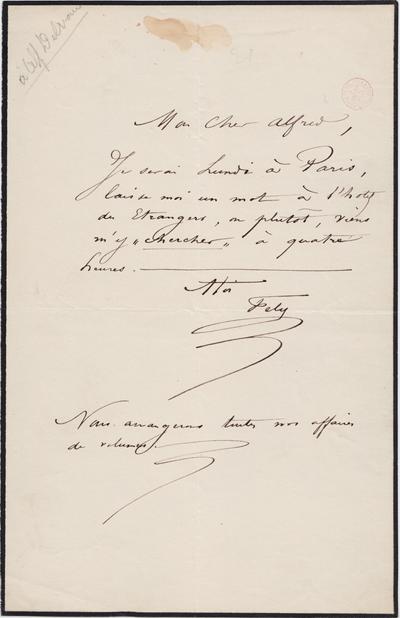 à Alf Delvau
Mon cher Alfred,
Je serai Lundi à Paris,
laisse moi un mot à l'hotel
des Etrangers, ou plutôt, viens
m'y "chercher" à quatre
heures.
Fély
Nous arrangerons toutes nos affaires
de volumes.